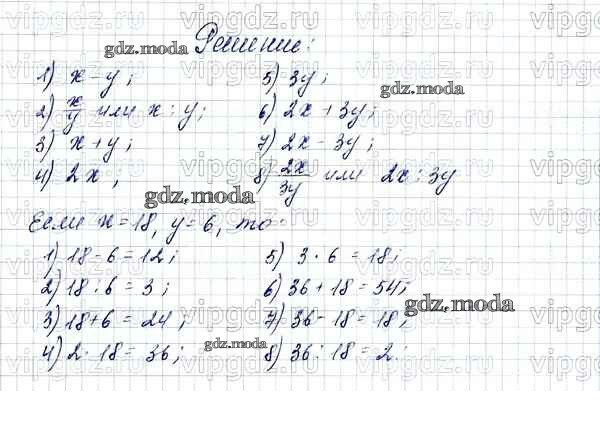 Решение:
1) x - y;
2) x/y или x : y;
3) x + y;
4) 2x;
5) 3y;
6) 2x + 3y;
7) 2x - 3y;
8) 2x/3y или 2x : 3y
Если x = 18, y = 6, то:
1) 18 - 6 = 12;
2) 18 : 6 = 3;
3) 18 + 6 = 24;
4) 2 · 18 = 36;
5) 3 · 6 = 18;
6) 36 + 18 = 54;
7) 36 - 18 = 18;
8) 36 : 18 = 2.
gdz.moda
gdz.moda
gdz.moda
gdz.moda
gdz.moda
vipgdz.ru